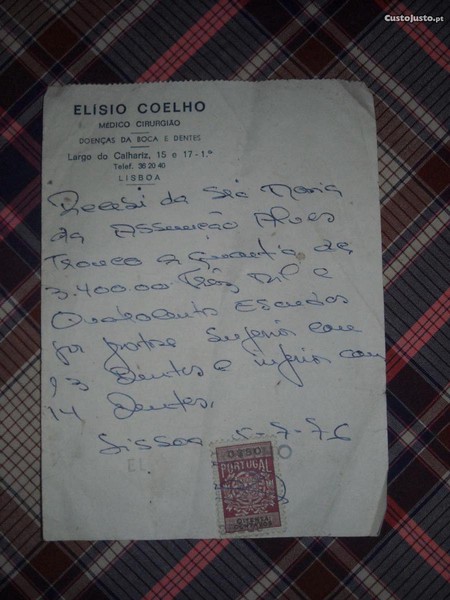 CustoJusto.pt
ELÍSIO COELHO
MÉDICO CIRURGIÃO
DOENÇAS DA BOCA E DENTES
Largo do Calhariz, 15 e 17-1.º
Telef. 36 20 40
LISBOA
Recebi da Srª Maria
da Assunção Alves
a quantia de
3.400.00 Três Mil e
Quatrocentos Escudos
por protese superior com
13 Dentes e inferior com
14 Dentes.
Lisboa 5-7-76
PORTUGAL